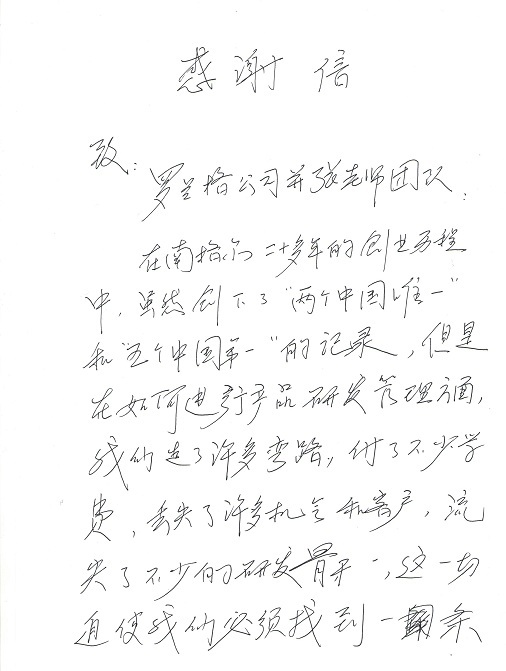 感谢信
致:
罗兰格公司并张老师团队:
在南格尔二十多年的创业历程
中,虽然创下了“两个中国唯一”
和“五个中国第一”的记录,但是
在如何进行产品研发管理方面,
我们走了许多弯路,付了不少学
费,丢失了许多机会和客户,流
失了不少的研发骨干,这一切
迫使我们必须找到一条